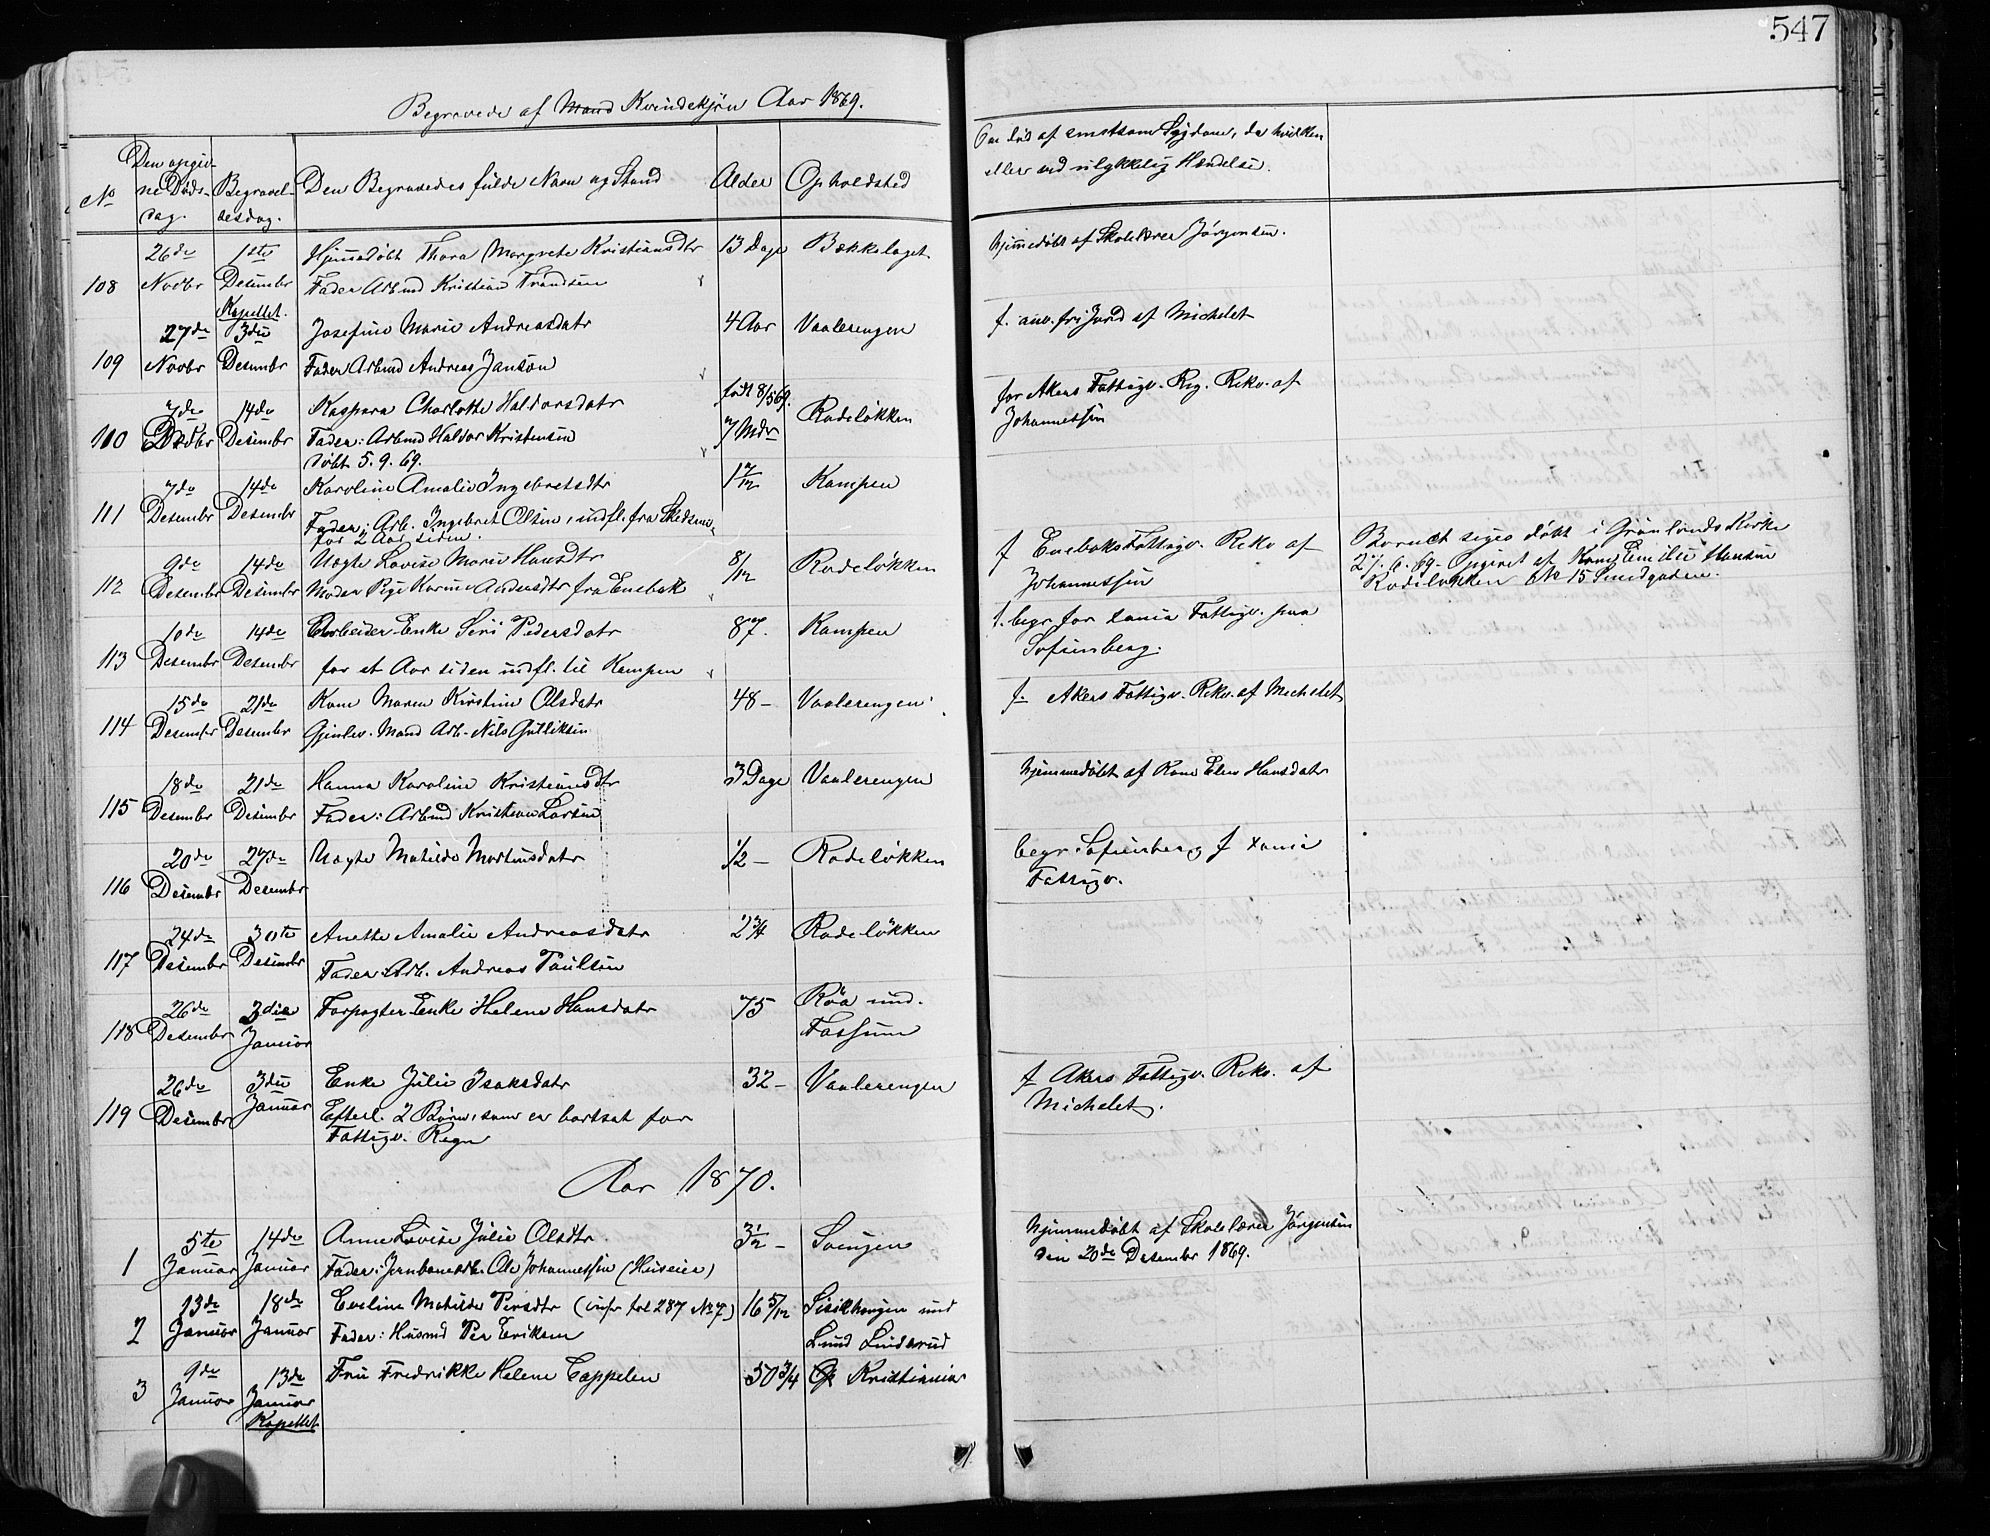 547
Begravede af Mand Kvindekjøn Aar 1869.
No
Den opgiv-
ne Døds-
dag.
Begravel-
sesdag.
Den Begravedes fulde Navn og Stand
Alder
Opholdsted
Om død af smitsom Sygdom, da hvilken
eller ved ulykkelig Hændelse.
108 26de Novbr 1ste Desember Kapellet.
Hjemmedøbt Thora Margrete Kristiansdtr
Fader Arbmd Kristian Trondsen
13 Dage Bækkelaget
hjemmedøbt af Skolelærer Jørgensen.
109 27de Novbr 3die Desembr
Josefine Marie Andreasdatr
Fader Arbmd Andreas Jansøn
4 Aar Vaalerengen
f. anv. fri Jord af Michelet
110 7de Desbr 14de Desembr
Kaspara Charlotte Haldorsdatr
Fader: Arbmd Haldor Kristensen
døbt 5. 9. 69.
født 8/5 69.
7 Mdr
Rodeløkken
for Akers Fattigv. Reg. Rekv. af
Johannessen
111 7de Desembr 14de Desembr
Karoline Amalie Ingebretsdtr
Fader: Arb. Ingebret Olsen, indfl. fra Skedsmo
for 2 Aar siden.
1 7/12 Kampen
112 9de Desembr 14de Desembr
Uægte Lovise Marie Hansdtr
Moder Pige Karine Andersdtr fra Enebak
8/12 Rodeløkken
f Enebaks Fattigv. Rekv af
Johannessen
Barnet siges døbt i Grønlands Kirke
27. 6. 69 - Opgivet af Kone Emilie Hansen
Rodeløkken No 15 Smedgaden.
113 10de Desembr 14de Desembr
Arbeider Enke Seri Pedersdatr
for et Aar siden indfl. til Kampen
87. Kampen
f. begr for Xania Fattigv. paa
Sofienberg.
114 15de Desember 21de Desembr
Kone Maren Kirstine Olsdatr
Gjenlev. Mand Arb. Nils Gulliksen
48 - Vaalerengen
f. Akers Fattigv. Rekv. af Michelet
115 18de Desembr 21de Desembr
Hanna Karoline Kristiansdtr
Fader: Arbmd Kristian Larsen
3 Dage Vaalerengen
hjemmedøbt af Kone Elen Hansdatr
116 20de Desembr 27de Desembr
Uægte Matilde Martinsdatr
1/2 - Rodeløkken
begr. Sofienberg f Xania
Fattigv.
117 24de Desembr 30te Desembr
Anette Amalie Andreasdatr
Fader Arb. Andreas Paulsen
2 3/4 Rodeløkken
118 26de Desembr 3die Januar
Forpagter Enke Helene Hansdatr
75 Røa und.
Fossum
119 26de Desembr 3die Januar
Enke Julie Isaksdatr
Efterl. 2 Børn, som er bortsat for
Fattigv. Regn
32 - Vaalerengen
f Akers Fattigv. Rekv. af
Michelet.
Aar 1870.
1 5te Januar 14de Januar
Anne Lovise Julie Olsdtr.
Fader: Jernbanearb. Ole Johannessen (Huseier)
3 1/2 - Svingen
hjemmedøbt af Skolelærer Jørgensen
den 20de Desember 1869.
2 13de Januar 18de Januar
Eveline Matilde Persdtr (infr fol 287 No 7)
Fader: Husmd Per Eriksen
16 5/12 Sisikhaugen und
Lund Linderud
3 9de Januar 13de Januar Kapellet
Fru Fredrikke Helene Cappelen
50 3/4 Kristiania